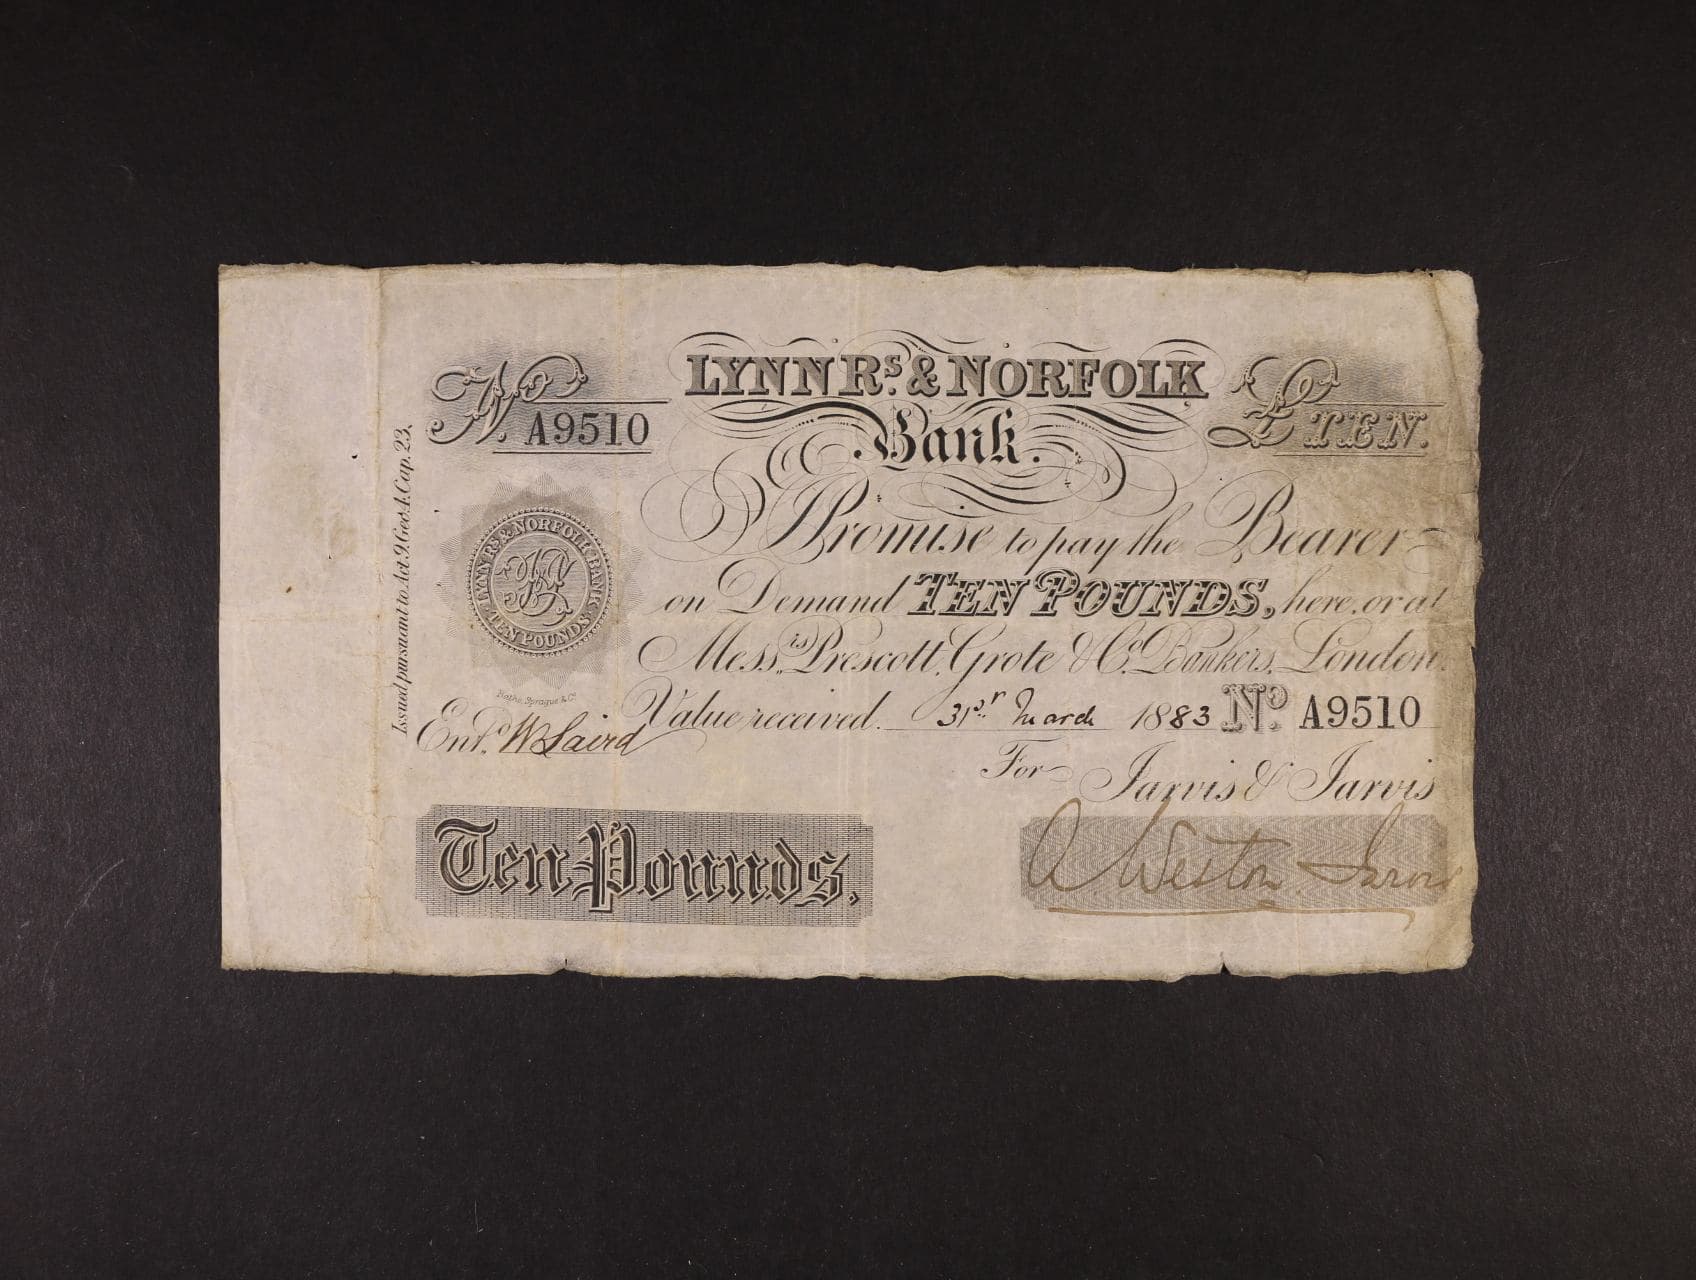 LYNN Rs. & NORFOLK
Bank.
No. A9510
£ TEN.
I Promise to pay the Bearer
on Demand TEN POUNDS, here, or at
Messrs. Prescott, Grote & Co. Bankers, London.
Value received. 31st March 1883 No. A9510
For Jarvis & Jarvis
A. Weston Jarvis
Issued pursuant to Act. 9. Geo. 4. Cap. 23.
LYNN Rs & NORFOLK BANK
TEN POUNDS
Sprague & Co.
Entd. W Laird
Ten Pounds.